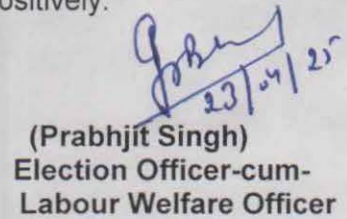 ositively.
23/04/25
(Prabhjit Singh)
Election Officer-cum-
Labour Welfare Officer